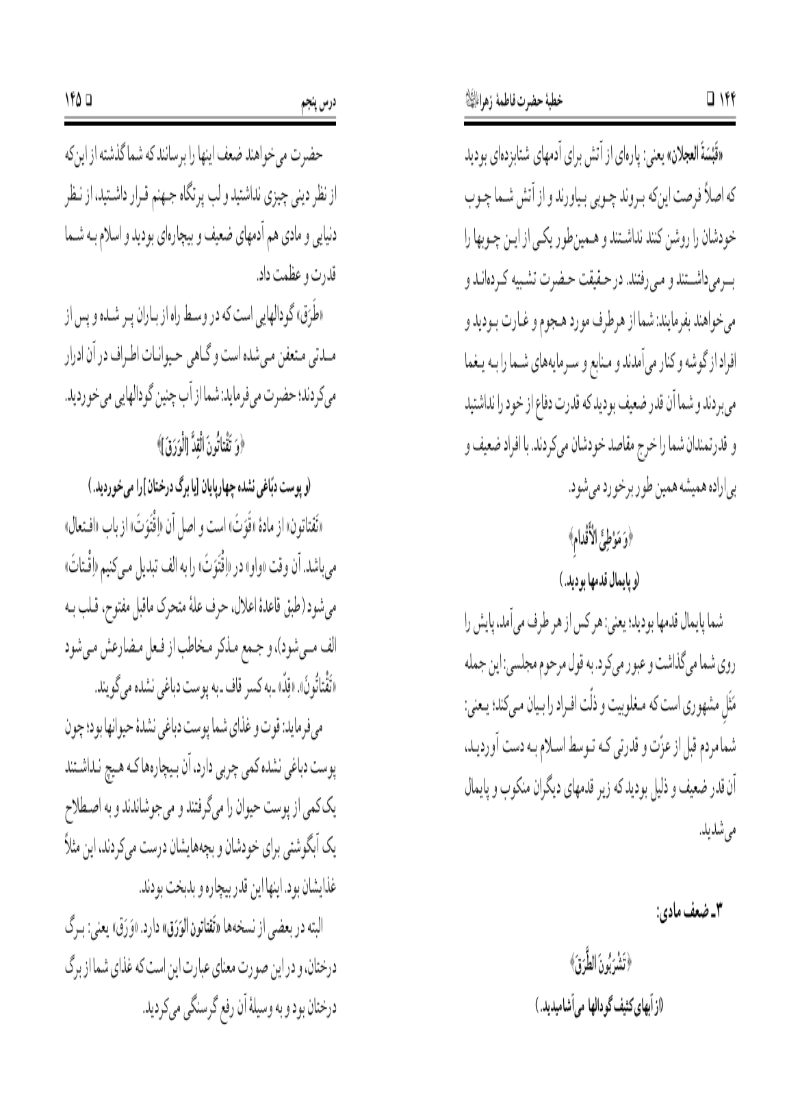 ۱۴۴ □ خطبهٔ حضرت فاطمهٔ زهرا
«قَبْسَةُ العجلان» یعنی: پاره‌ای از آتش برای آدمهای شتابزده‌ای بودید
که اصلاً فرصت این‌که بروند چوبی بیاورند و از آتش شما چوب
خودشان را روشن کنند نداشتند و همین‌طور یکی از این چوبها را
برمی‌داشتند و می‌رفتند. در حقیقت حضرت تشبیه کرده‌اند و
می‌خواهند بفرمایند: شما از هر طرف مورد هجوم و غارت بودید و
افراد از گوشه و کنار می‌آمدند و منابع و سرمایه‌های شما را به یغما
می‌بردند و شما آن قدر ضعیف بودید که قدرت دفاع از خود را نداشتید
و قدرتمندان شما را خرج مقاصد خودشان می‌کردند. با افراد ضعیف و
بی‌اراده همیشه همین طور برخورد می‌شود.
﴿وَ مَوْطِئَ الْأَقْدامِ﴾
(و پایمال قدمها بودید.)
شما پایمال قدمها بودید؛ یعنی: هر کس از هر طرف می‌آمد، پایش را
روی شما می‌گذاشت و عبور می‌کرد. به قول مرحوم مجلسی: این جمله
مَثَلِ مشهوری است که مغلوبیت و ذلّت افراد را بیان می‌کند؛ یعنی:
شما مردم قبل از عزّت و قدرتی که توسط اسلام به دست آوردید،
آن قدر ضعیف و ذلیل بودید که زیر قدمهای دیگران منکوب و پایمال
می‌شدید.
۳ـ ضعف مادی:
﴿تَشْرَبُونَ الطَّرَقَ﴾
(از آبهای کثیف گودالها می‌آشامیدید.)
درس پنجم □ ۱۴۵
حضرت می‌خواهند ضعف اینها را برسانند که شما گذشته از این‌که
از نظر دینی چیزی نداشتید و لب پرتگاه جهنم قرار داشتید، از نظر
دنیایی و مادی هم آدمهای ضعیف و بیچاره‌ای بودید و اسلام به شما
قدرت و عظمت داد.
«طَرَق» گودالهایی است که در وسط راه از باران پر شده و پس از
مدتی متعفن می‌شده است و گاهی حیوانات اطراف در آن ادرار
می‌کردند؛ حضرت می‌فرماید: شما از آب چنین گودالهایی می‌خوردید.
﴿وَ تَقْتاتُونَ الْقِدَّ [الْوَرَقَ]﴾
(و پوست دبّاغی نشده چهارپایان [یا برگ درختان] را می‌خوردید.)
«تقتاتون» از مادهٔ «قَوَتَ» است و اصل آن «اِقْتَوَتَ» از باب «افتعال»
می‌باشد. آن وقت «واو» در «اِقْتَوَتَ» را به الف تبدیل می‌کنیم «اِقْتاتَ»
می‌شود (طبق قاعدهٔ اعلال، حرف علهٔ متحرک ماقبل مفتوح، قلب به
الف می‌شود)، و جمع مذکر مخاطب از فعل مضارعش می‌شود
«تَقْتاتُونَ». «قِدّ» ـ به کسر قاف ـ به پوست دباغی نشده می‌گویند.
می‌فرماید: قوت و غذای شما پوست دباغی نشدهٔ حیوانها بود؛ چون
پوست دباغی نشده کمی چربی دارد، آن بیچاره‌ها که هیچ نداشتند
یک کمی از پوست حیوان را می‌گرفتند و می‌جوشاندند و به اصطلاح
یک آبگوشتی برای خودشان و بچه‌هایشان درست می‌کردند، این مثلاً
غذایشان بود. اینها این قدر بیچاره و بدبخت بودند.
البته در بعضی از نسخه‌ها «تقتاتون الوَرَق» دارد. «وَرَق» یعنی: برگ
درختان، و در این صورت معنای عبارت این است که غذای شما از برگ
درختان بود و به وسیلهٔ آن رفع گرسنگی می‌کردید.